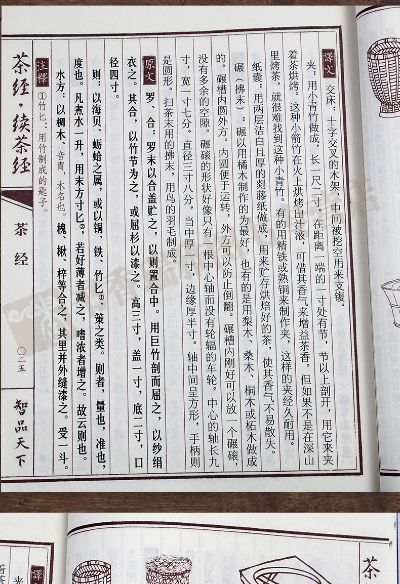 译文
交床：十字交叉的木架，中间被挖空用来支镬。
夹：用小青竹做成，长一尺二寸，在距离一端的一寸处有节，节以上剖开，用它来夹
着茶烘烤。这种小箭竹在火上烘烤出汁液，可借其香气来增益茶香。但如果不是在深山
里烤茶，就很难找到这种小青竹。有的用精铁或熟铜来制作夹，这样的夹经久耐用。
纸囊：用两层洁白且厚的剡藤纸做成，用来贮存烘焙好的茶，使其香气不易散失。
碾（拂末）：碾以用橘木制作的为最好，也有的是用梨木、桑木、桐木或柘木做成
的。碾槽内圆外方。内圆便于运转，外方可以防止倒翻。碾槽内刚好可以放一个碾磙，
没有多余的空隙。碾磙的形状好像只有一根中心轴而没有轮辐的车轮。中心的轴长九
寸，宽一寸七分。直径三寸八分，当中厚一寸，边缘厚半寸。轴中间呈方形，手柄则
是圆形。扫茶末用的拂末，用鸟的羽毛制成。
原文
罗、合：罗末以合盖贮之，以则置合中。用巨竹剖而屈之，以纱绢
衣之。其合，以竹节为之，或屈杉以漆之。高三寸，盖一寸，底二寸，口
径四寸。
则：以海贝、蛎蛤之属，或以铜、铁、竹匕①，策之类。则者，量也，准也，
度也。凡煮水一升，用末方寸匕②，若好薄者减之，嗜浓者增之。故云则也。
水方：以椆木、音胄，木名也。槐、楸、梓等合之，其里并外缝漆之。受一斗。
注释
①竹匕：用竹制成的匙子。
茶经·续茶经
茶经
〇二五
智品天下
茶
译